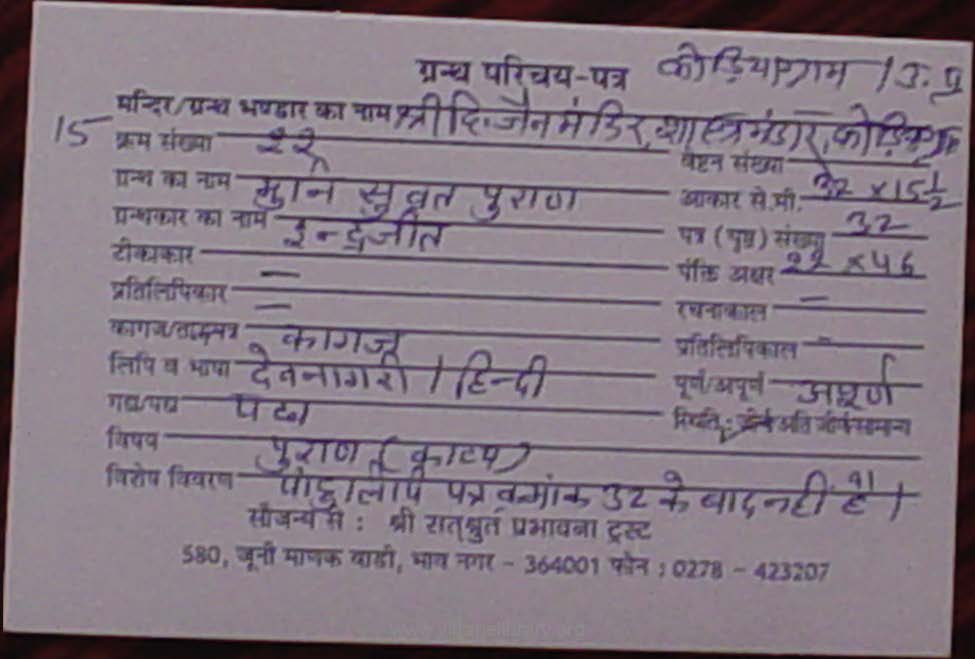 ग्रन्थ परिचय-पत्र कोड़ियागंज / उ. प्र
मन्दिर/ग्रन्थ भण्डार का नाम श्री दि. जैन मंदिर, शास्त्र भंडार,
15 क्रम संख्या २२ वेष्टन संख्या
ग्रन्थ का नाम मुनि सुव्रत पुराण आकार से.मी. 32 x 15½
ग्रन्थकार का नाम इन्द्रजीत पत्र (पृष्ठ) संख्या 32
टीकाकार — पंक्ति अक्षर २२ x 46
प्रतिलिपिकार — रचनाकाल —
कागज/ताड़पत्र कागज प्रतिलिपिकाल -
लिपि व भाषा देवनागरी / हिन्दी पूर्ण/अपूर्ण अपूर्ण
गद्य/पद्य पद्य स्थिति: जीर्ण अति जीर्ण सामान्य
विषय पुराण (काव्य)
विशेष विवरण पांडुलिपि पत्र क्रमांक 32 के बाद नहीं है।
सौजन्य से : श्री सत्श्रुत प्रभावना ट्रस्ट
580, जूनी माणक वाडी, भाव नगर - 364001 फोन : 0278 - 423207